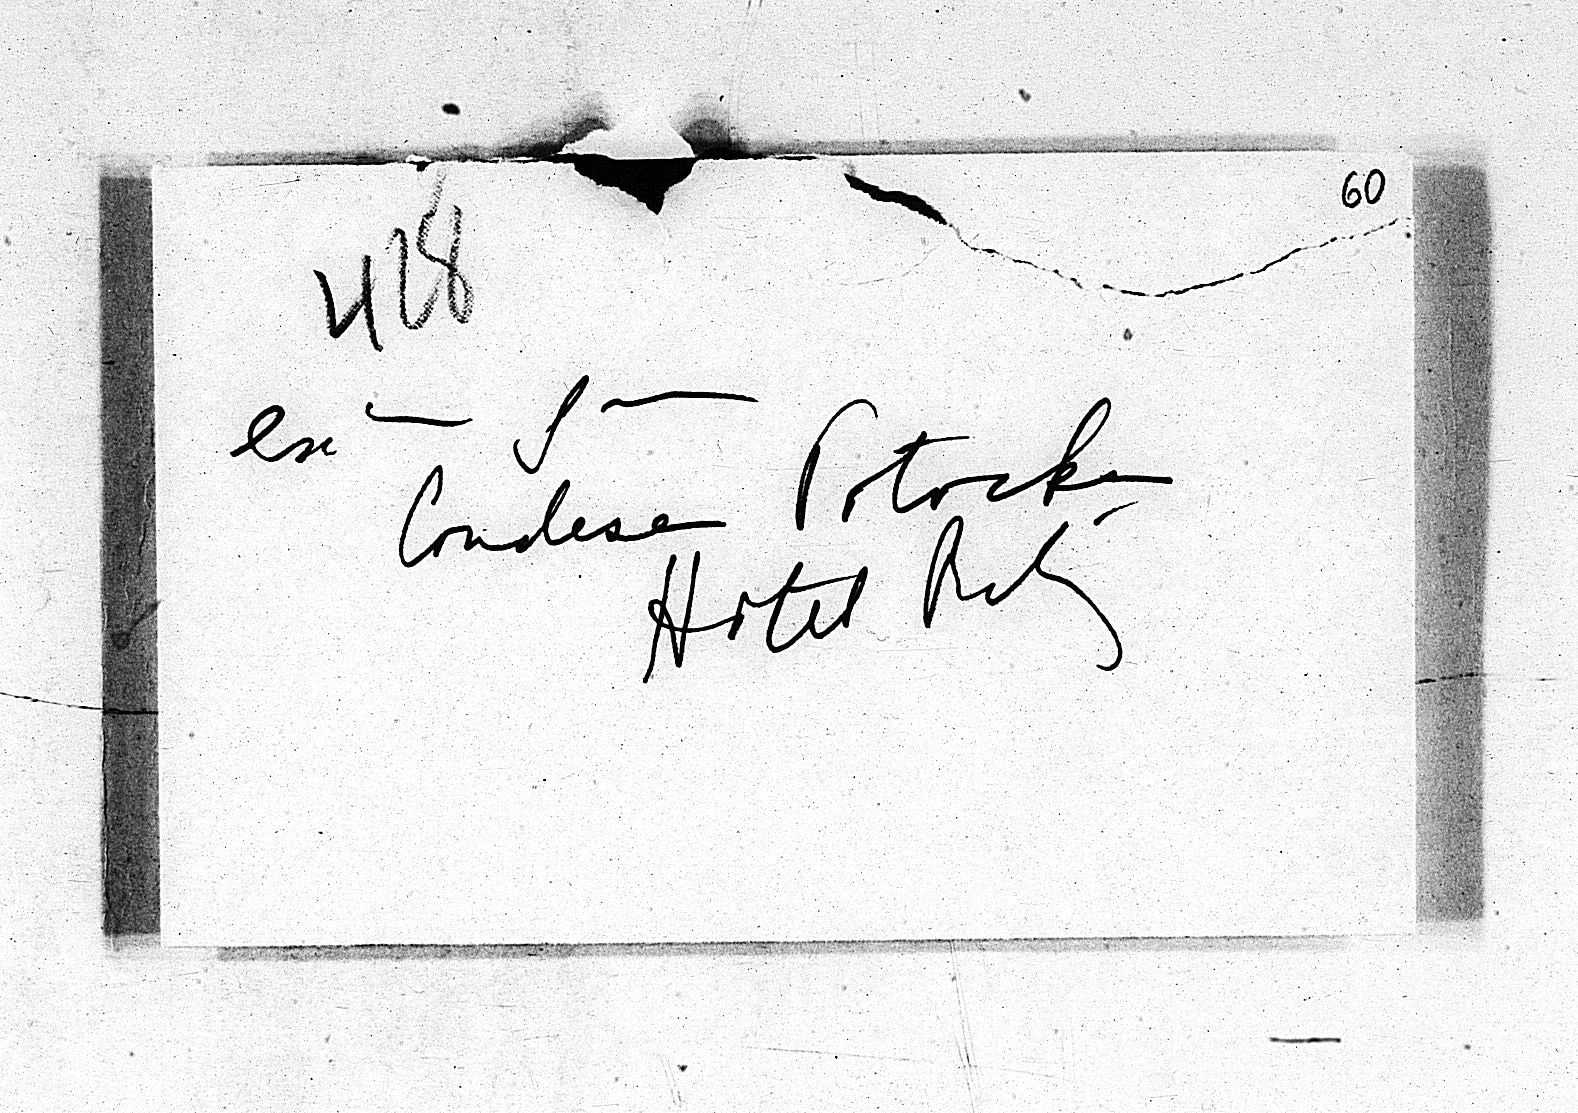 60
428
Condesa Potocka
Hotel Ritz